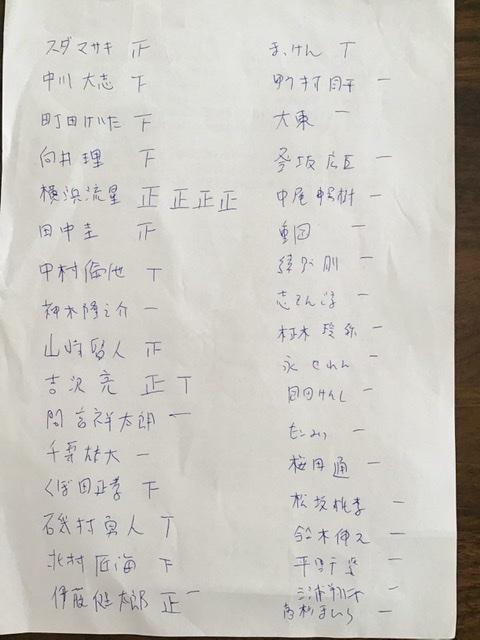 スダマサキ 正
中川 大志 下
町田けいた 下
向井 理 下
横浜流星 正 正 正 正
田中圭 正
中村倫也 T
神木隆之介 一
山崎賢人 正
吉沢 亮 正 T
間宮祥太朗 一
千葉雄大 一
くぼ田正孝 下
磯村勇人 T
北村匠海 下
伊藤健太郎 正 一
まっけん T
野村周平 一
大東 一
登坂広臣 一
中尾暢樹 一
重岡 一
綾野剛 一
志そん淳 一
柾木玲弥 一
永せれん 一
目田けんし 一
一
桜田通 一
松坂桃李 一
鈴木伸之 一
平野紫 一
三浦翔平 一
高杉まひろ 一